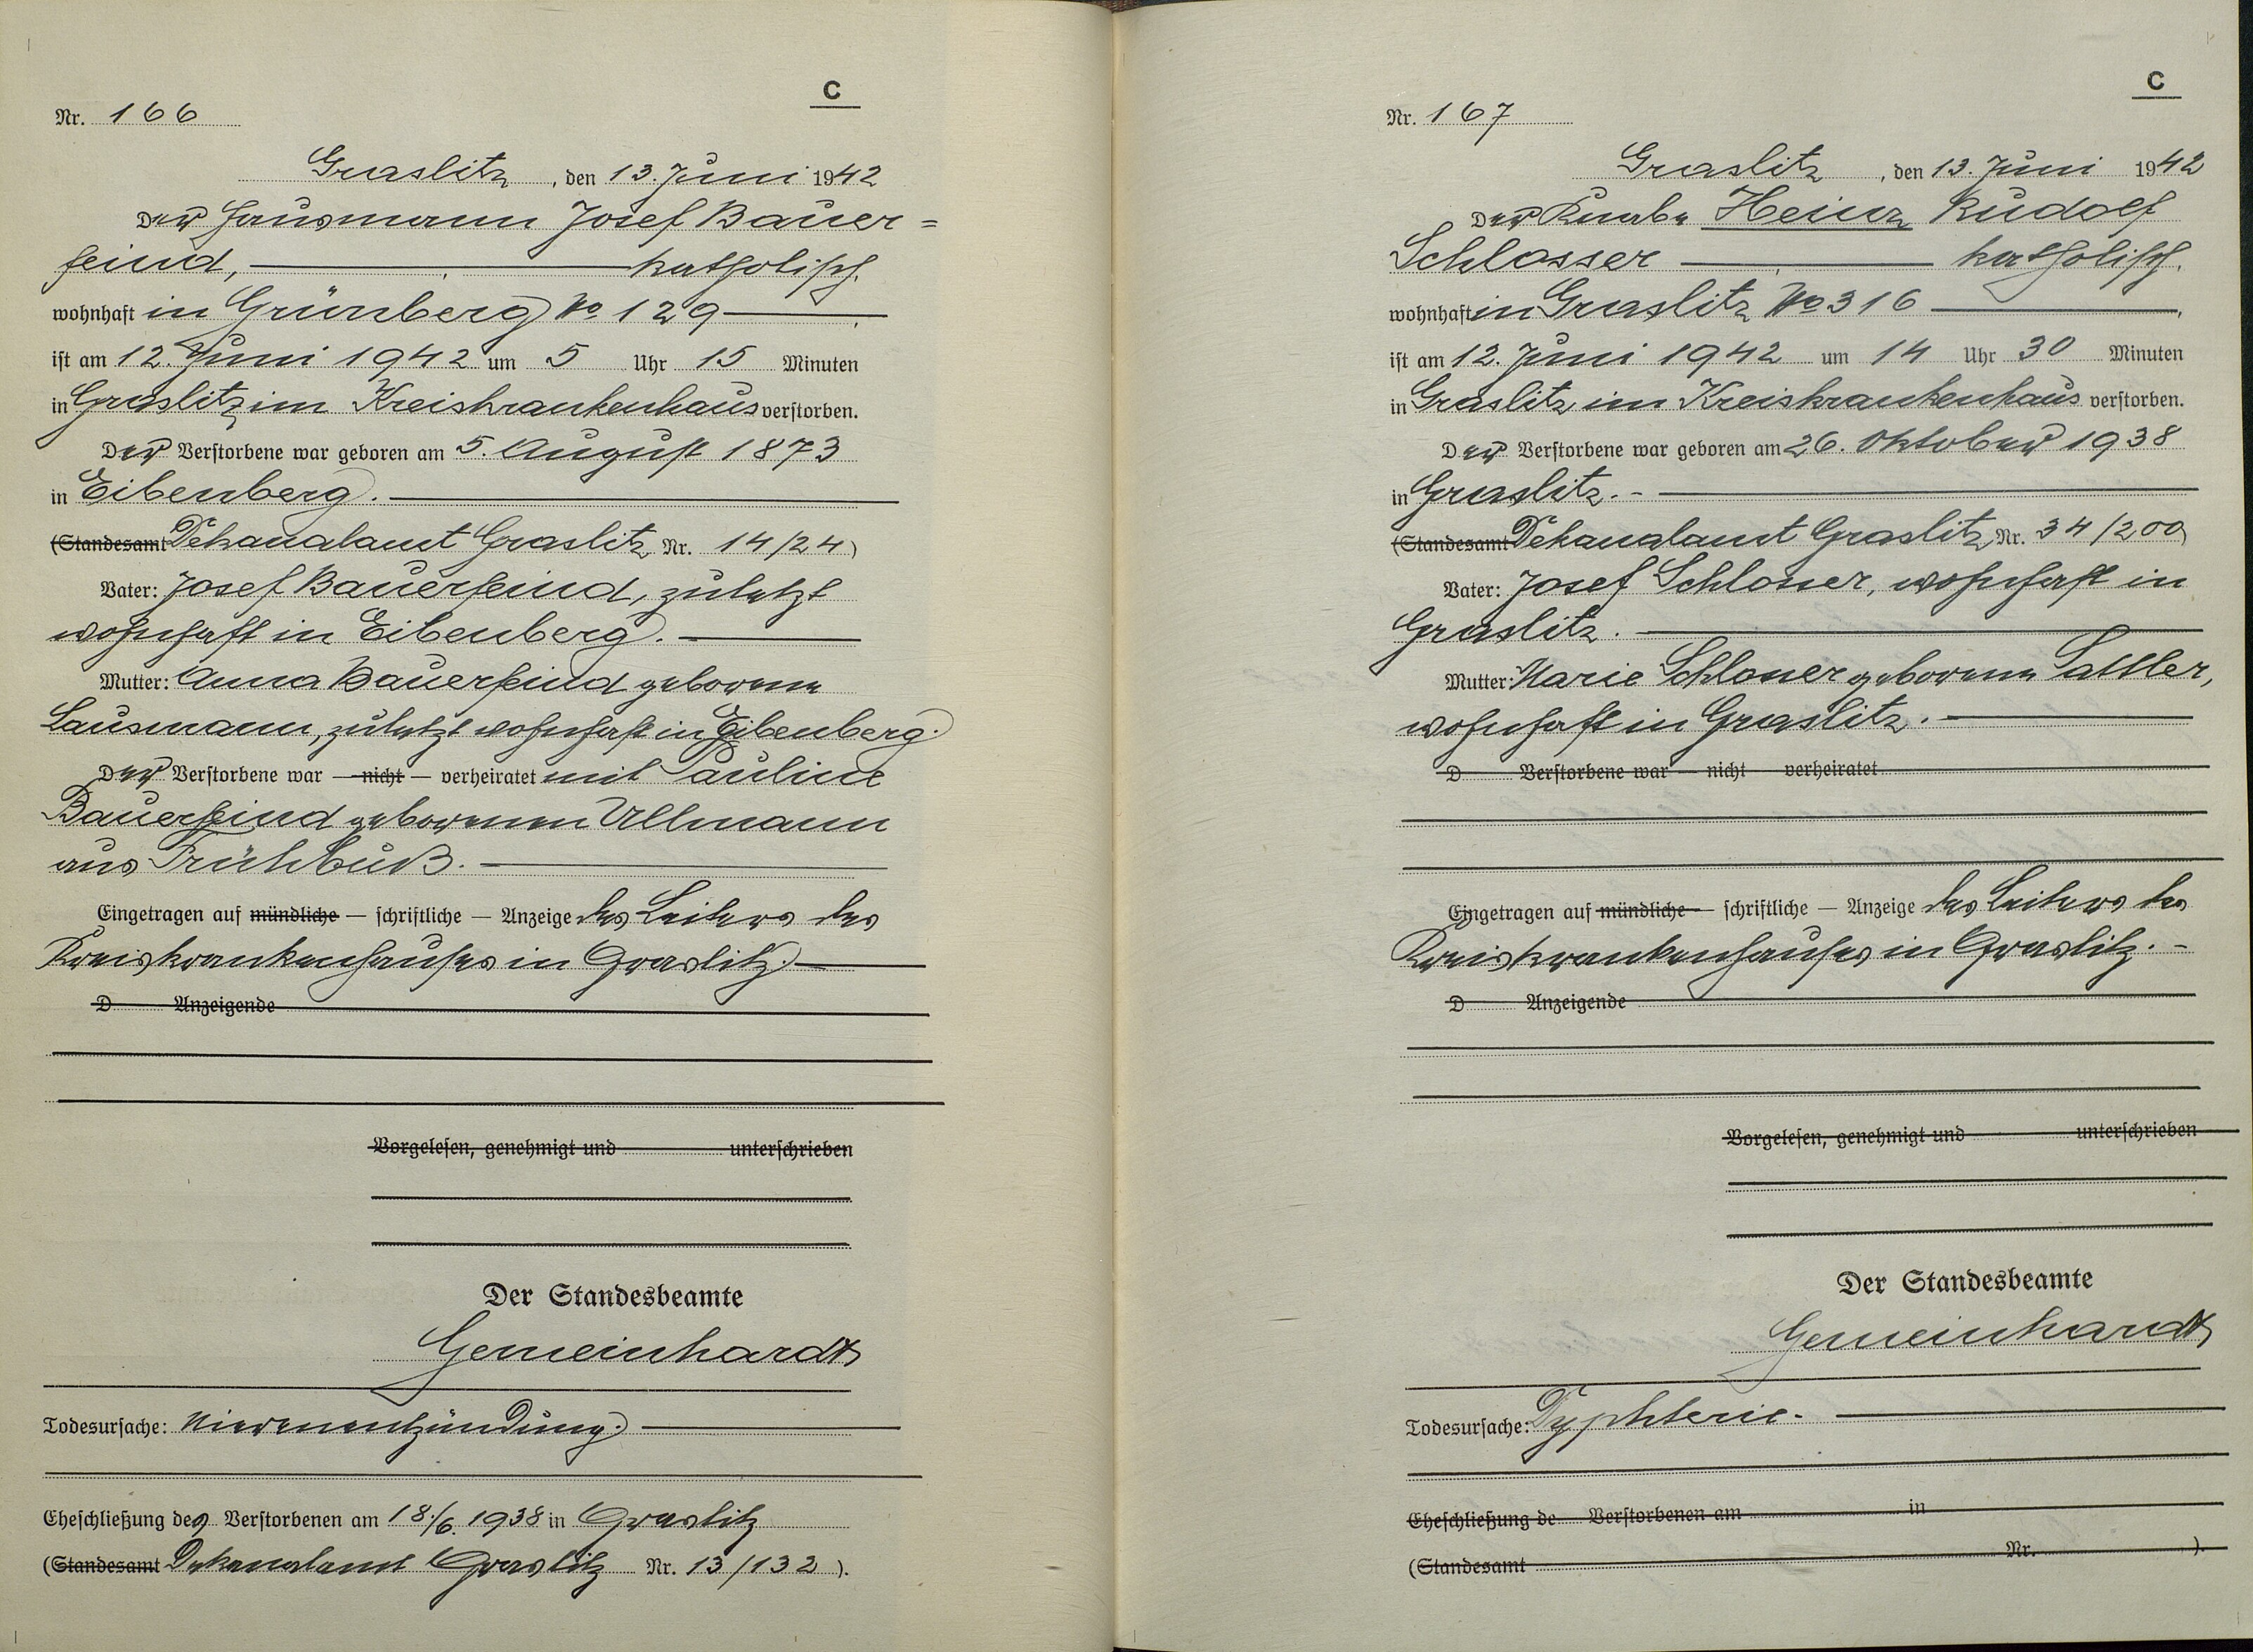 C
Nr. 166
Graslitz, den 13. Juni 1942
Der Hausmann Josef Bauer=
feind, katholisch,
wohnhaft in Grünberg No 129
ist am 12. Juni 1942 um 5 Uhr 15 Minuten
in Graslitz im Kreiskrankenhaus verstorben.
Der Verstorbene war geboren am 5. August 1873
in Eibenberg.
(Standesamt Dekanalamt Graslitz Nr. 14/24)
Vater: Josef Bauerfeind, zuletzt
wohnhaft in Eibenberg.
Mutter: Anna Bauerfeind geborene
Lausmann, zuletzt wohnhaft in Eibenberg.
Der Verstorbene war — nicht — verheiratet mit Pauline
Bauerfeind geborenen Ullmann
aus Frühbuß.
Eingetragen auf mündliche — schriftliche — Anzeige des Leiters des
Kreiskrankenhauses in Graslitz.
D Anzeigende
Vorgelesen, genehmigt und unterschrieben
Der Standesbeamte
Gemeinhardt
Todesursache: Nierenentzündung.
Eheschließung des Verstorbenen am 18./6. 1938 in Graslitz
(Standesamt Dekanalamt Graslitz Nr. 13/132).
C
Nr. 167
Graslitz, den 13. Juni 1942
Der Knabe Heinz Rudolf
Schlosser katholisch,
wohnhaft in Graslitz No 316,
ist am 12. Juni 1942 um 14 Uhr 30 Minuten
in Graslitz im Kreiskrankenhaus verstorben.
Der Verstorbene war geboren am 26. Oktober 1938
in Graslitz.-
(Standesamt Dekanalamt Graslitz Nr. 34/200)
Vater: Josef Schlosser, wohnhaft in
Graslitz.
Mutter: Marie Schlosser geborene Sattler,
wohnhaft in Graslitz.
D Verstorbene war — nicht — verheiratet
Eingetragen auf mündliche — schriftliche — Anzeige des Leiters des
Kreiskrankenhauses in Graslitz.-
D Anzeigende
Vorgelesen, genehmigt und unterschrieben
Der Standesbeamte
Gemeinhardt
Todesursache: Dyphterie.
Eheschließung de Verstorbenen am in
(Standesamt Nr. ).